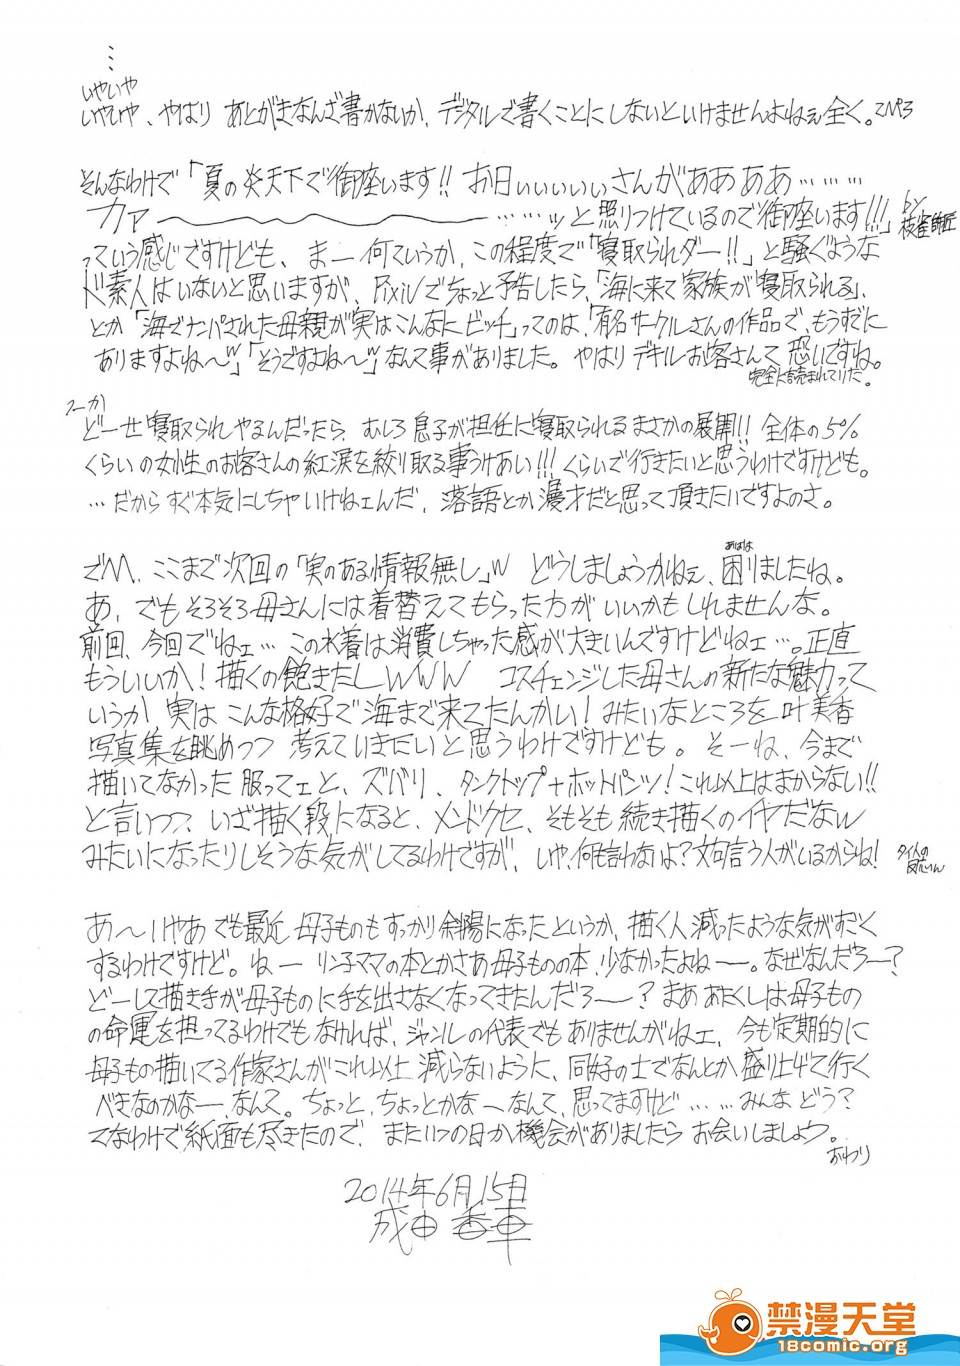 …
いやいや
いやいや、やはり あとがきなんざ書かないか、デジタルで書くことにしないといけませんよねぇ全く。
そんなわけで「夏の炎天下で御座います!! お日ぃぃぃぃぃさんがああああ………
カァ――――――――……ッと照りつけているので御座います!!!」
by 枝雀師匠
っていう感じですけども、まー何ていうか、この程度で「寝取られダー!!」と騒ぐような
ド素人はいないと思いますが、Pixivでちょっと予告したら、「海に来て家族が寝取られる」、
とか「海でナンパされた母親が実はこんなにビッチ」ってのは、「有名サークルさんの作品で、もうすでに
ありますよね〜w」「そうですよね〜w」なんて事がありました。やはりデキルお客さんて恐いですね。
完全に読まれてりた。
つーか
どーせ寝取られやるんだったら、むしろ息子が担任に寝取られるまさかの展開!! 全体の5%
くらいの女性のお客さんの紅涙を絞り取る事うけあい!!! くらいで行きたいと思うわけですけども。
…だからすぐ本気にしちゃいけねェんだ、落語とか漫才だと思って頂きたいですよのさ。
でM、ここまで次回の「実のある情報無し」w どうしましょうかねぇ、困りましたね。
あ、でもそろそろ母さんには着替えてもらった方がいいかもしれませんな。
前回、今回でねェ…この水着は消費しちゃった感が大きいんですけどねェ…。正直
もういいか!描くの飽きたしwww コスチェンジした母さんの新たな魅力って
いうか、実はこんな格好で海まで来てたんかい!みたいなところを叶美香
写真集を眺めつつ 考えていきたいと思うわけですけども。そーね、今まで
描いてなかった服ってェと、ズバリ、タンクトップ+ホットパンツ!これ以上はまからない!!
と言いつつ、いざ描く段になると、メンドクセ、そもそも続き描くのイヤだなw
みたいになったりしそうな気がしてるわけですが、いや、何も言わないよ?文句言う人がいるからね!
あ〜いやあでも最近 母子ものもすっかり斜陽になったというか、描く人減ったような気がすごく
するわけですけど。ねーリン子ママの本とかさあ母子ものの本、少なかったよねー。なぜなんだろー?
どーして描き手が母子ものに手を出さなくなってきたんだろー?まああたくしは母子もの
の命運を担ってるわけでもなければ、ジャンルの代表でもありませんがねェ、今も定期的に
母子もの描いてる作家さんがこれ以上減らないように、同好の士でなんとか盛り上げて行く
べきなのかなー、なんて。ちょっと、ちょっとかなーなんて、思ってますけど……みんな どう?
てなわけで紙面も尽きたので、またいつの日か機会がありましたら お会いしましょう。
おわり
2014年6月15日
成田香車
禁漫天堂
18comic.org